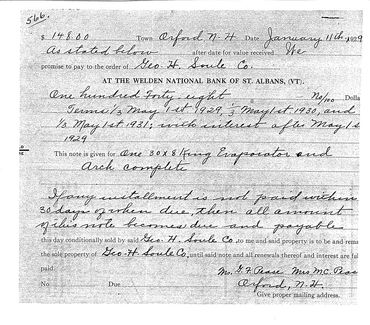 566.
$ 148.00 Town Orford N.H Date January 11th 1929
As stated below after date for value received We
promise to pay to the order of Geo. H. Soule Co.
AT THE WELDEN NATIONAL BANK OF ST. ALBANS, (VT).
One hundred Forty eight No/100 Dolla
Terms 1/3 May 1st 1929, 1/3 May 1st 1930, and
1/3 May 1st 1931; with interest after May 1s
1929
This note is given for One 30 x 8 King Evaporator and
Arch complete
If any installment is not paid within
30 days of when due, then all amount
of this note becomes due and payable
this day conditionally sold by said Geo. H. Soule Co. to me and said property is to be and rema
the sole property of Geo. H. Soule Co. until said note and all renewals thereof and interest are ful
paid. Mr. G. F. Pease Mrs M.C. Peas
No Due Orford, N.H.
Give proper mailing address.